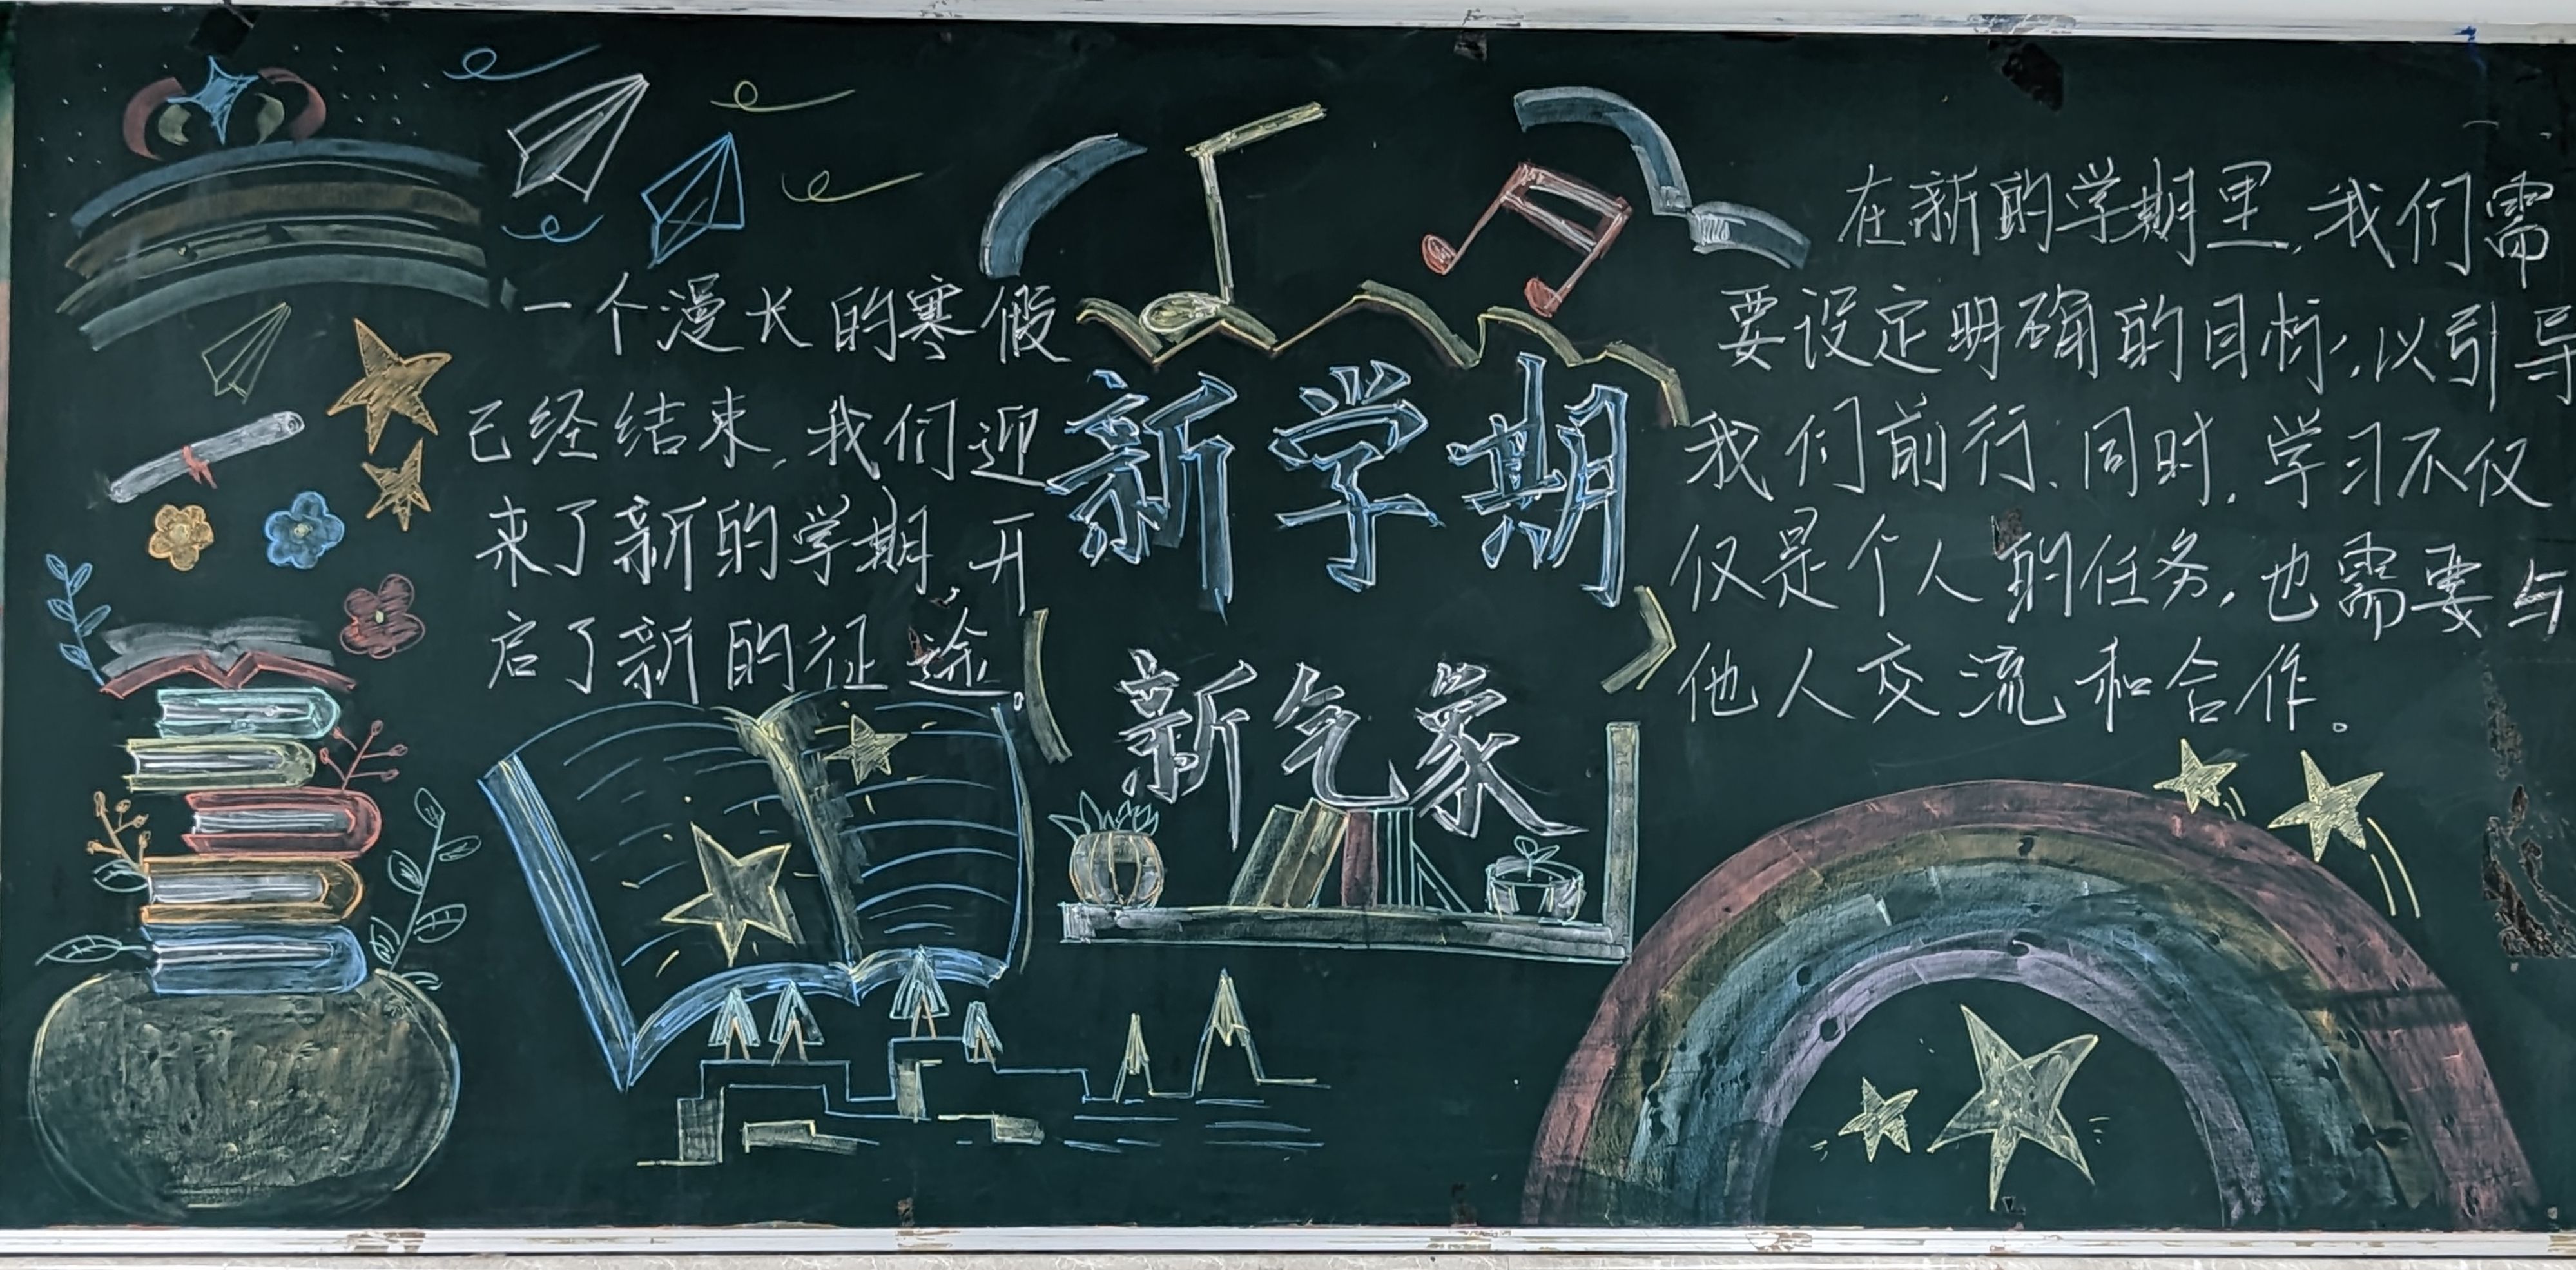 一个漫长的寒假
已经结束,我们迎
来了新的学期,开
启了新的征途。
新学期
新气象
在新的学期里,我们需
要设定明确的目标,以引导
我们前行.同时,学习不仅
仅是个人的任务,也需要与
他人交流和合作。